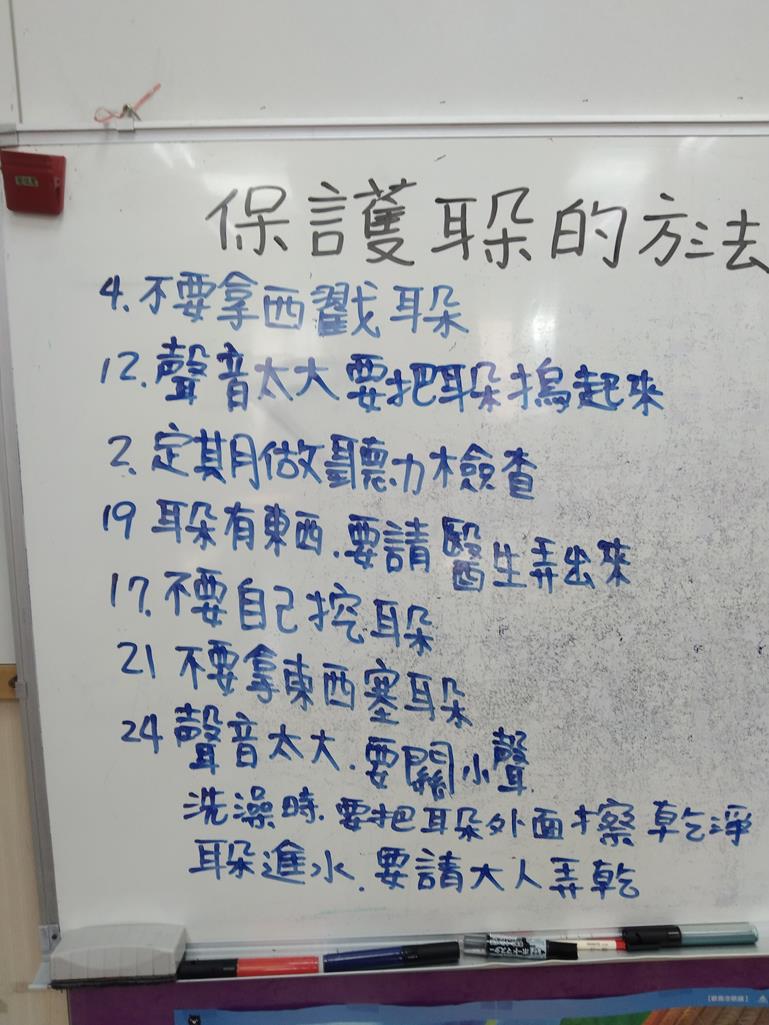 保護耳朵的方法
4.不要拿西戳耳朵
12.聲音太大要把耳朵摀起來
2.定期做聽力檢查
19 耳朵有東西.要請醫生弄出來
17.不要自己挖耳朵
21 不要拿東西塞耳朵
24 聲音太大.要關小聲
洗澡時.要把耳朵外面擦乾淨
耳朵進水.要請大人弄乾